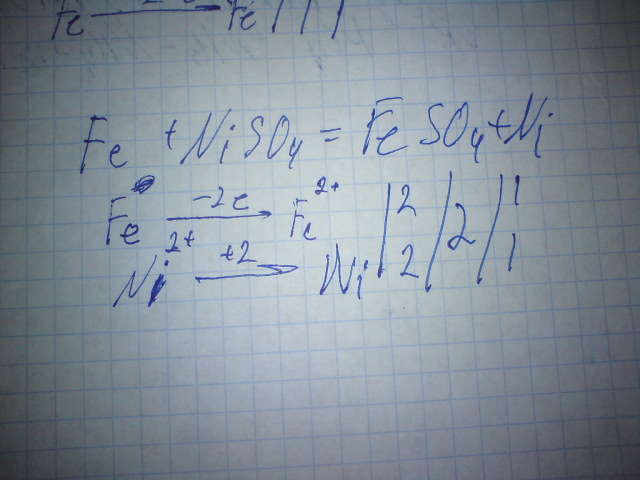 Fe → Fe | | |
Fe + NiSO₄ = FeSO₄ + Ni
Fe⁰ -2e → Fe²⁺ | 2 | 2 | 1
Ni²⁺ +2 → Ni | 2 | | 1